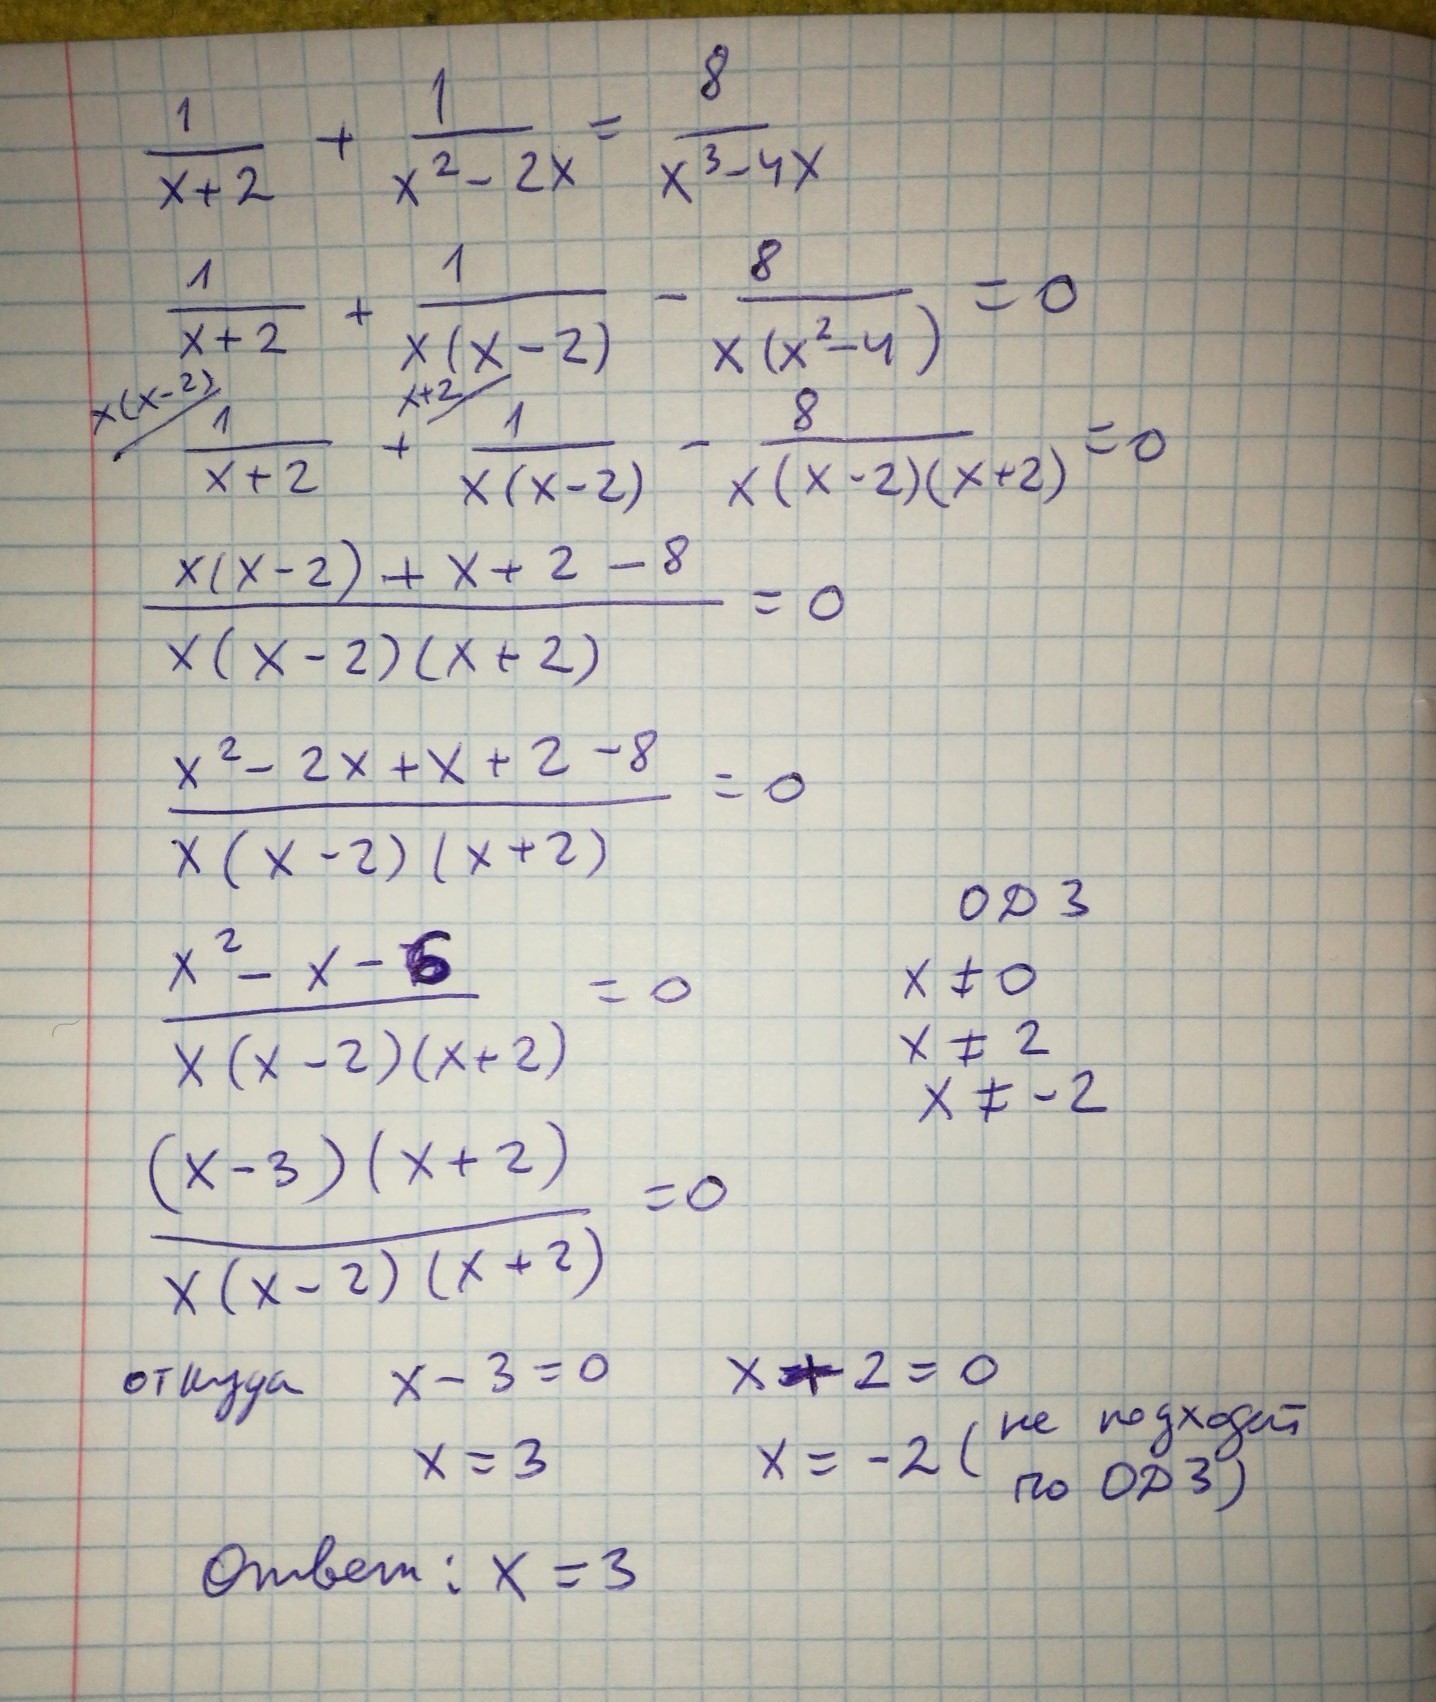 1/(x+2) + 1/(x²-2x) = 8/(x³-4x)
1/(x+2) + 1/(x(x-2)) - 8/(x(x²-4)) = 0
x(x-2)/ 1/(x+2) + x+2/ 1/(x(x-2)) - 8/(x(x-2)(x+2)) = 0
(x(x-2)+x+2-8)/(x(x-2)(x+2)) = 0
(x²-2x+x+2-8)/(x(x-2)(x+2)) = 0
(x²-x-6)/(x(x-2)(x+2)) = 0
ОДЗ
x≠0
x≠2
x≠-2
((x-3)(x+2))/(x(x-2)(x+2)) = 0
откуда x-3=0 x+2=0
x=3 x=-2 (не подходит по ОДЗ)
Ответ: x=3